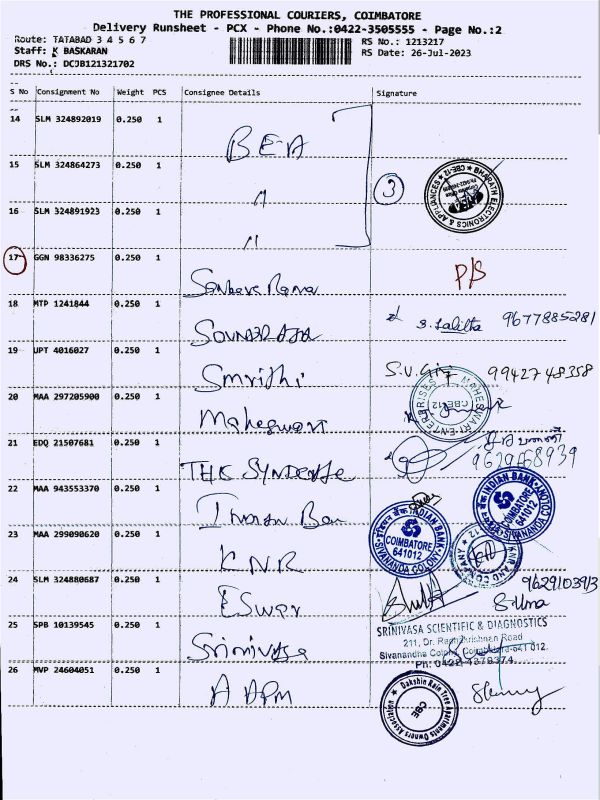 THE PROFESSIONAL COURIERS, COIMBATORE
Delivery Runsheet - PCX - Phone No.:0422-3505555 - Page No.:2
Route: TATABAD 3 4 5 6 7
RS No.: 1213217
Staff: K BASKARAN
RS Date: 26-Jul-2023
DRS No.: DCJB121321702
S No Consignment No Weight PCS Consignee Details Signature
14 SLM 324892019 0.250 1 BEA
15 SLM 324864273 0.250 1 " 3
BHARATH ELECTRONICS & APPLIANCES ★ CBE-12 ★
16 SLM 324891923 0.250 1 "
17 GGN 98336275 0.250 1 P/S
18 MTP 1241844 0.250 1 S. Lalitha 9677885281
19 UPT 4016027 0.250 1 Smrithi S.V. 9942748358
20 MAA 297205900 0.250 1 Maheswari
MAHESWARI ENTERPRISES CBE-12
21 EDQ 21507681 0.250 1 THE 9629668939
22 MAA 943553370 0.250 1 Indian Ban
INDIAN BANK COIMBATORE 641012 SIVANANDA COLONY
INDIAN BANK COIMBATORE 641012 SIVANANDA COLONY
23 MAA 299090620 0.250 1 KNR
KNR AND COMPANY
24 SLM 324880687 0.250 1 Eswar 9629103913
25 SPB 10139545 0.250 1 Srinivasa
SRINIVASA SCIENTIFIC & DIAGNOSTICS
211, Dr. Radhakrishnan Road
Sivanandha Colony, Coimbatore-641 012.
Ph: 0422-4379374
26 MVP 24604051 0.250 1
Dakshin Rain Tree Apartments Owners Association CBE